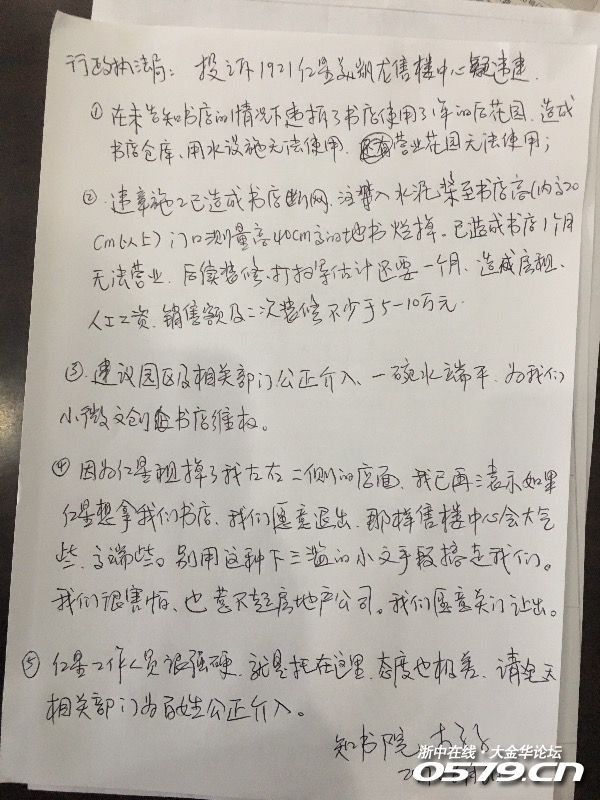 行政执法局：投诉1921红星美凯龙售楼中心疑违建.
① 在未告知书店的情况下违拆了书店使用了1年的后花园，造成
书店仓库、用水设施无法使用，还有营业花园无法使用；
② 违章施工已造成书店断网，注入水泥浆至书店高(内高20
cm以上)门口测量高40cm高的地书烂掉，已造成书店1个月
无法营业，后续装修、打扫等估计还要一个月，造成房租、
人工工资，销售额及二次装修不少于5-10万元.
③.建议园区及相关部门公正介入、一碗水端平，为我们
小微文创书店维权。
④ 因为红星租掉了我左右二侧的店面，我已再三表示如果
红星想拿我们书店，我们愿意退出，那样售楼中心会大气
些、高端些。别用这种下三滥的小文手段搞走我们。
我们很害怕、也惹不起房地产公司。我们愿意关门让出。
⑤ 红星工作人员很强硬，就是托在这里，态度也极差，请
相关部门为百姓公正介入。
知书院
浙中在线·大金华论坛
0579.cn